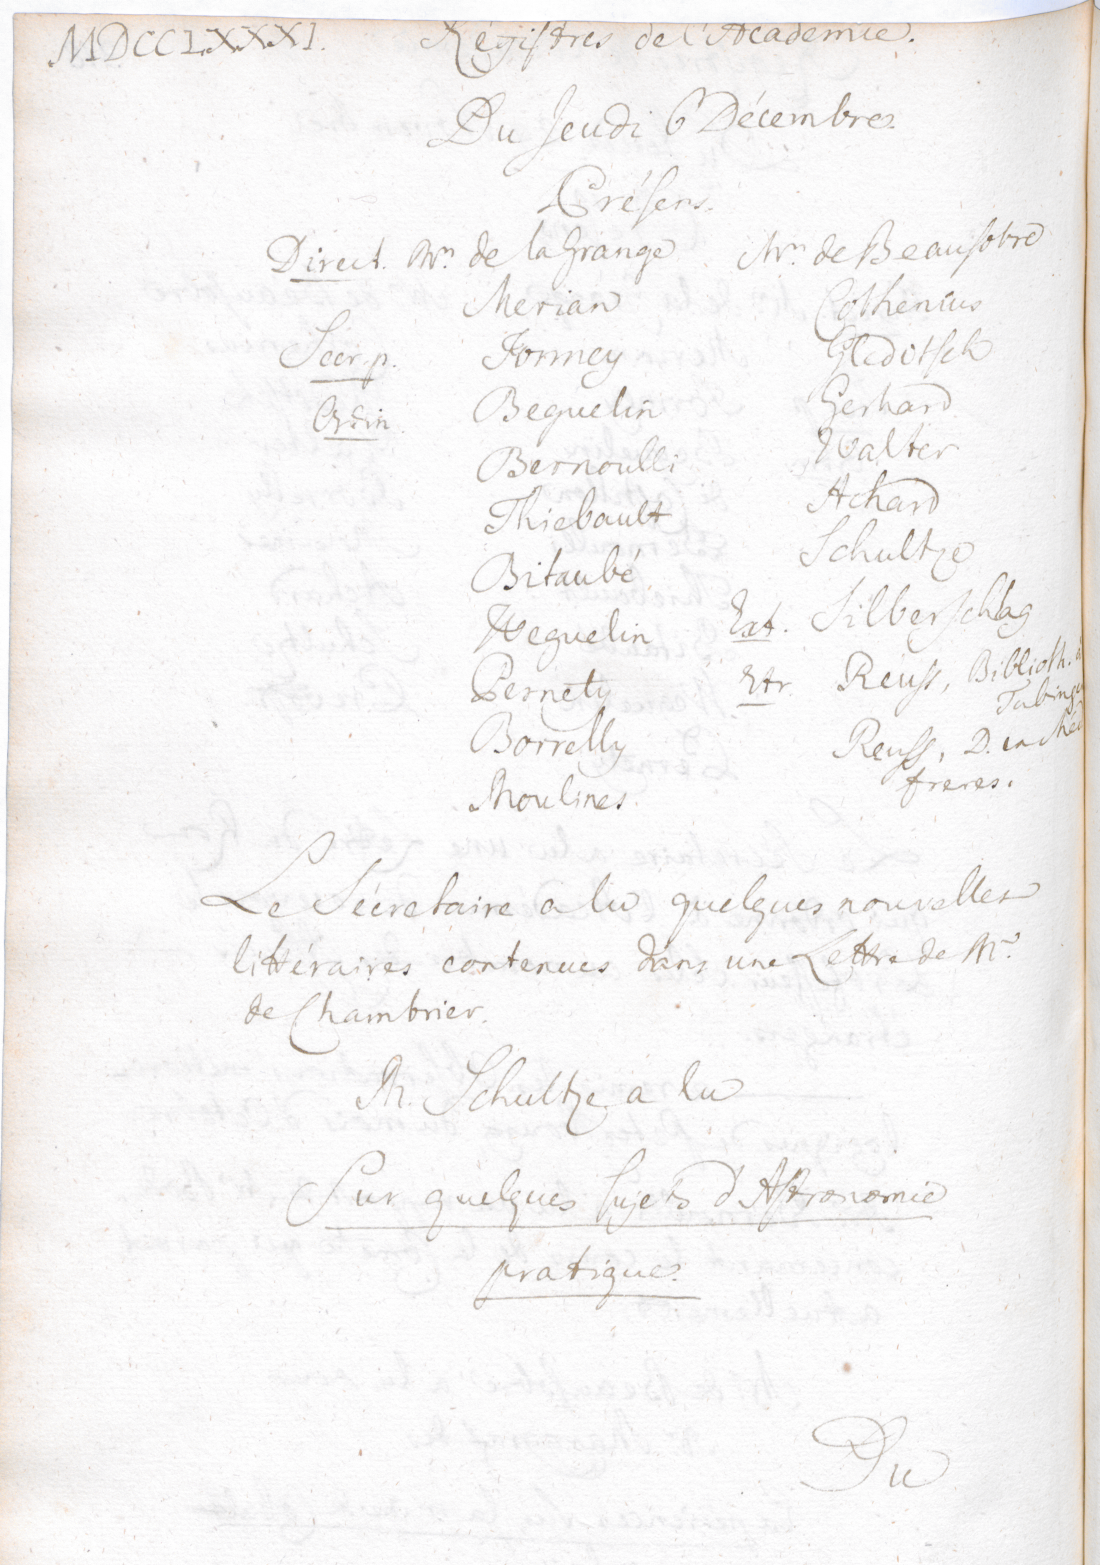 MDCCLXXXI. Régistres de l'Academie.
Du Jeudi 6 Décembre.
Présens.
Direct. Mrs. de la Grange
Merian
Secr. p. Formey
Ordin. Beguelin
Bernoulli
Thiebault
Bitaubé
Weguelin
Pernety
Borrelly
Moulines.
Mrs. de Beausobre
Cothenius
Gleditsch
Gerhard
Walter
Achard
Schultze
Ext. Silberschlag
Etr. Reuss, Biblioth. à
Tubingen
Reuss, D. en Méd
freres.
Le Sécretaire a lu quelques nouvelles
littéraires contenues dans une Lettre de Mr.
de Chambrier.
M. Schultze a lu
Sur quelques sujets d'Astronomie
pratique.
Du